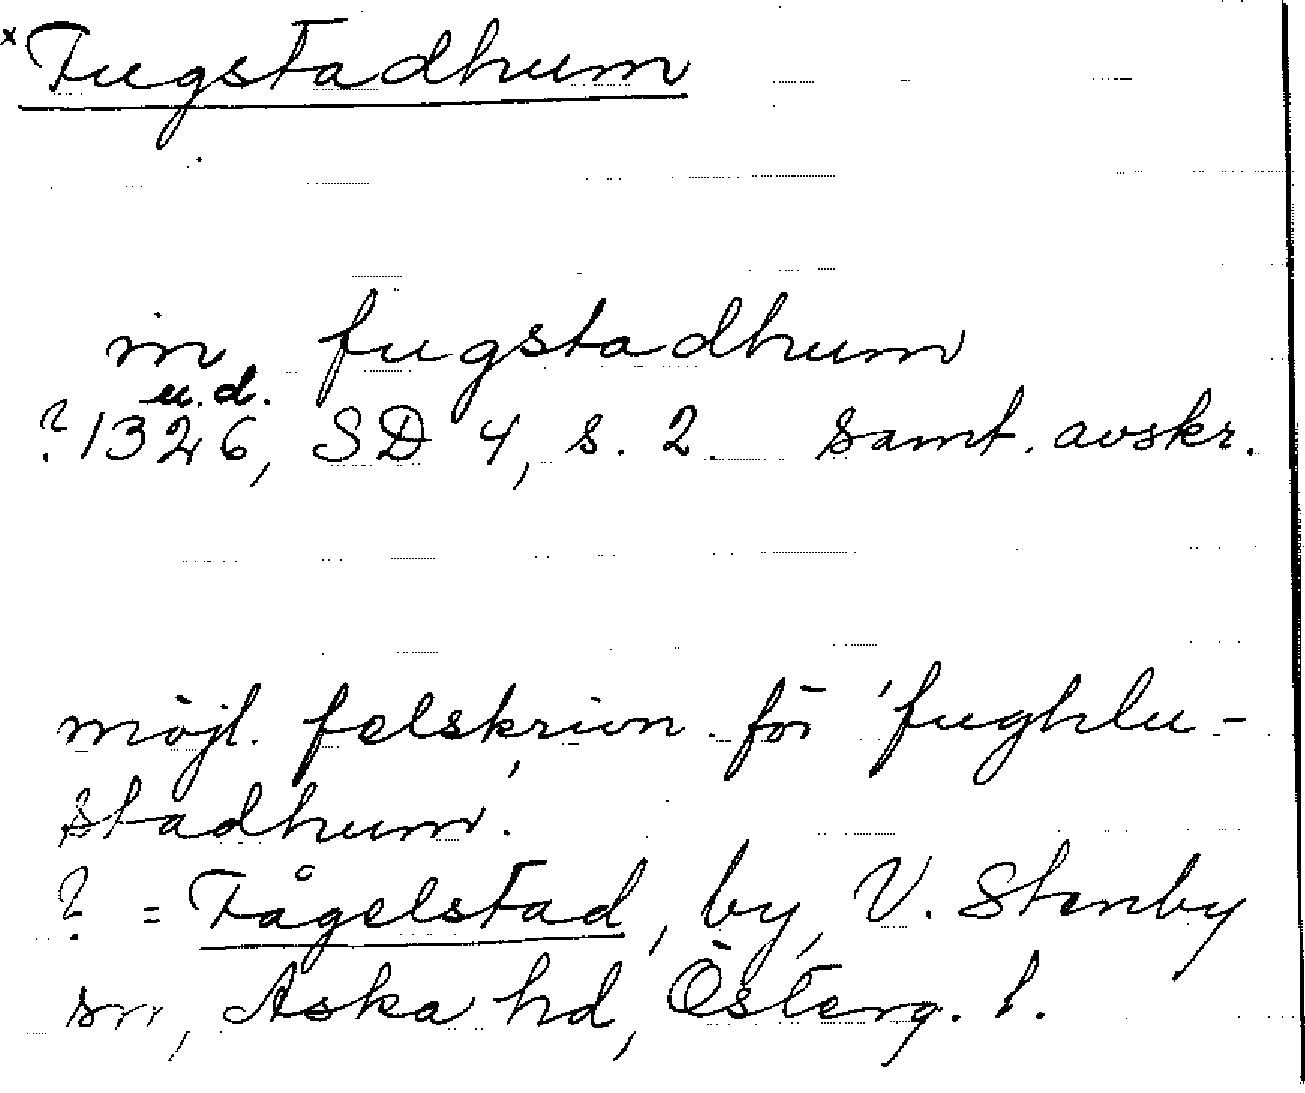 x Fugstadhum
in fugstadhum
u.d.
? 1326, SD 4, s. 2. Samt. avskr.
möjl. felskrivn. för 'fughlu-
stadhum'.
? = Fågelstad, by, V. Stenby
sn, Aska hd, Österg. l.